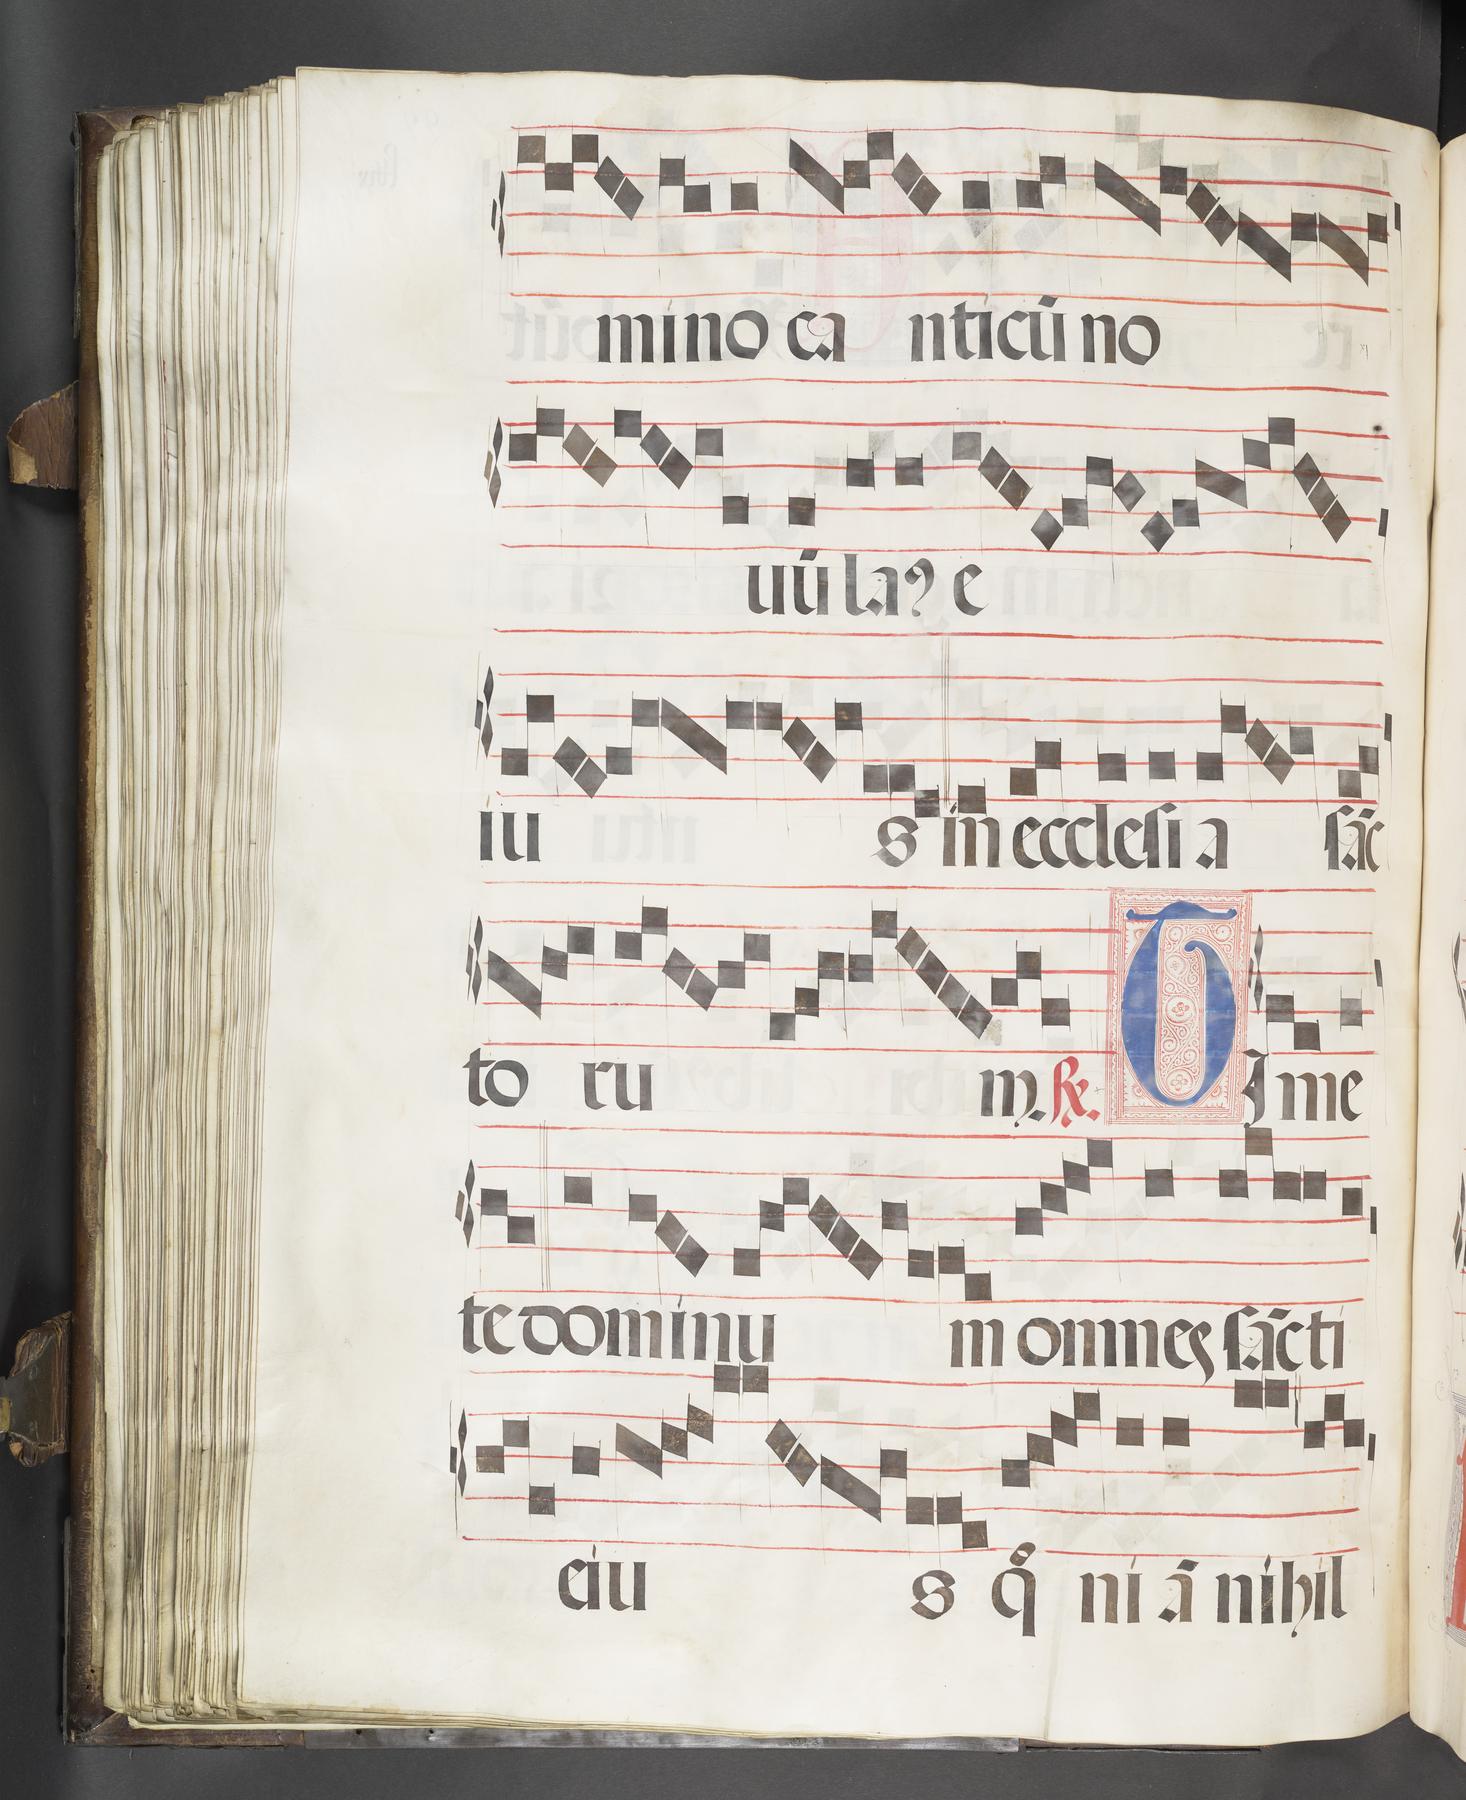 mino ca nticū no
uū laꝰ e
iu s in ecclesia sāc
to ru m. R̶. 
TJ me
te dominu m omnes sācti
eiu s qͦ ni ā nihil